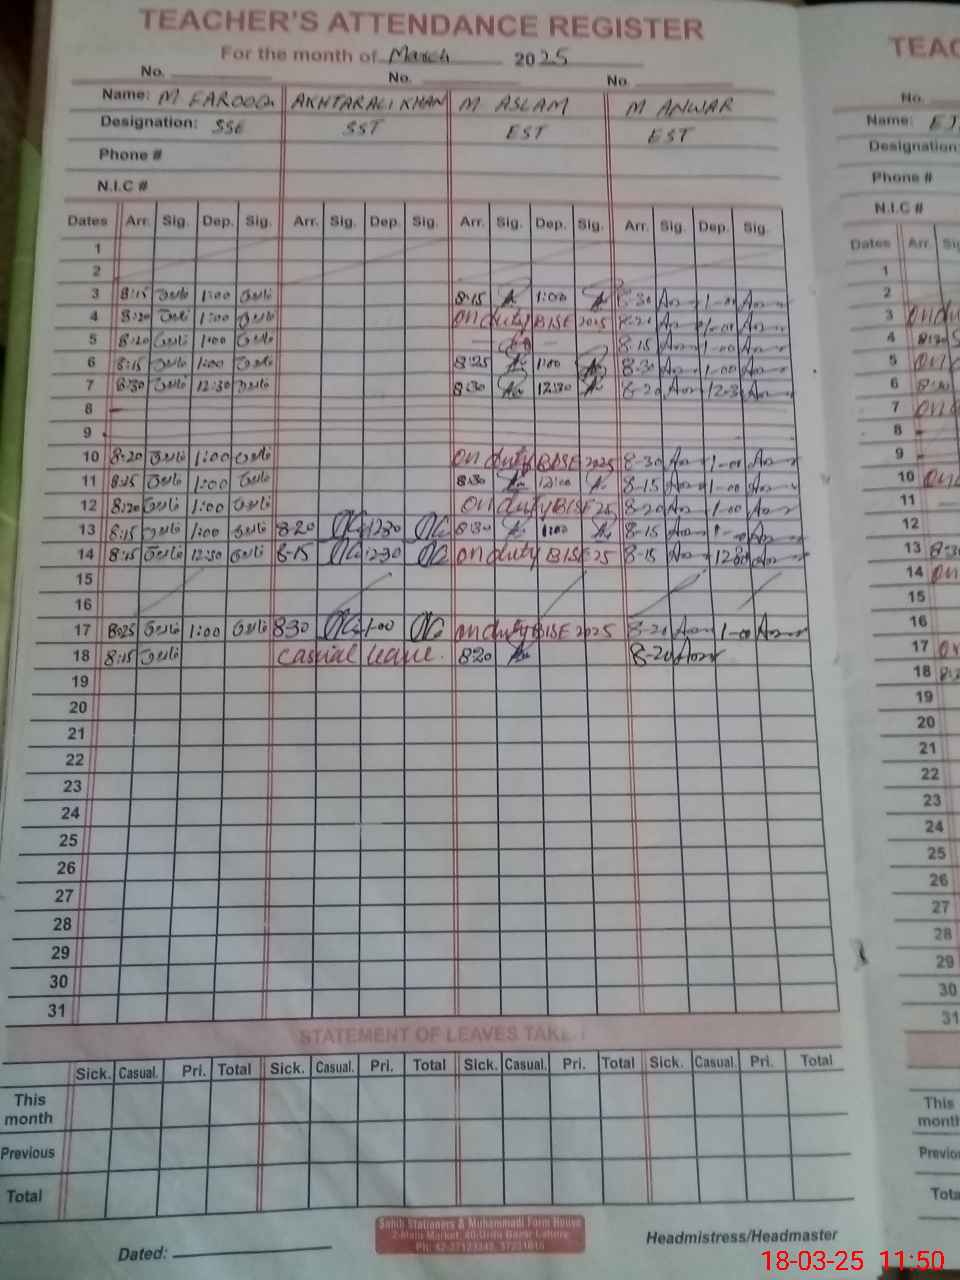 TEACHER'S ATTENDANCE REGISTER
For the month of March 2025
No. No. No.
Name: M FAROOQ AKHTAR ALI KHAN M ASLAM M ANWAR
Designation: SSE SST EST EST
Phone #
N.I.C #
Dates Arr. Sig. Dep. Sig. Arr. Sig. Dep. Sig. Arr. Sig. Dep. Sig. Arr. Sig. Dep. Sig.
1
2
3 8:15 1:00 8-15 1:00 8-30 1-00
4 8:20 1:00 on duty BISE 2025 8-20 1-00
5 8:20 1:00 8-15 1-00
6 8:15 1:00 8:25 1:00 8-30 1-00
7 8:30 12:30 8:30 12:30 8-20 12-3
8
9
10 8-20 1:00 on duty BISE 2025 8-30 1-00
11 8:25 1:00 8:30 12:00 8-15 1-00
12 8:20 1:00 on duty BISE 25 8-20 1-00
13 8:15 1:00 8-20 1230 8:30 1:00 8-15
14 8:45 12:30 8-15 1230 on duty BISE 25 8-15
15
16
17 8:25 1:00 830 1-00 on duty BISE 2025 8-20 1-00
18 8:15 casual leave. 820 8-20
19
20
21
22
23
24
25
26
27
28
29
30
31
STATEMENT OF LEAVES TAKE
Sick. Casual. Pri. Total Sick. Casual. Pri. Total Sick. Casual. Pri. Total Sick. Casual. Pri. Total
This month
Previous
Total
Sahib Stationers & Muhammadi Form House
2-Main Market, 40-Urdu Bazar Lahore
Dated:
Headmistress/Headmaster
TEAC
No.
Name:
Designation
Phone #
N.I.C #
Dates Arr.
1
2
3
4
5
6
7
8
9
10
11
12
13
14
15
16
17
18
19
20
21
22
23
24
25
26
27
28
29
30
31
This
month
Previo
Tota
18-03-25 11:50